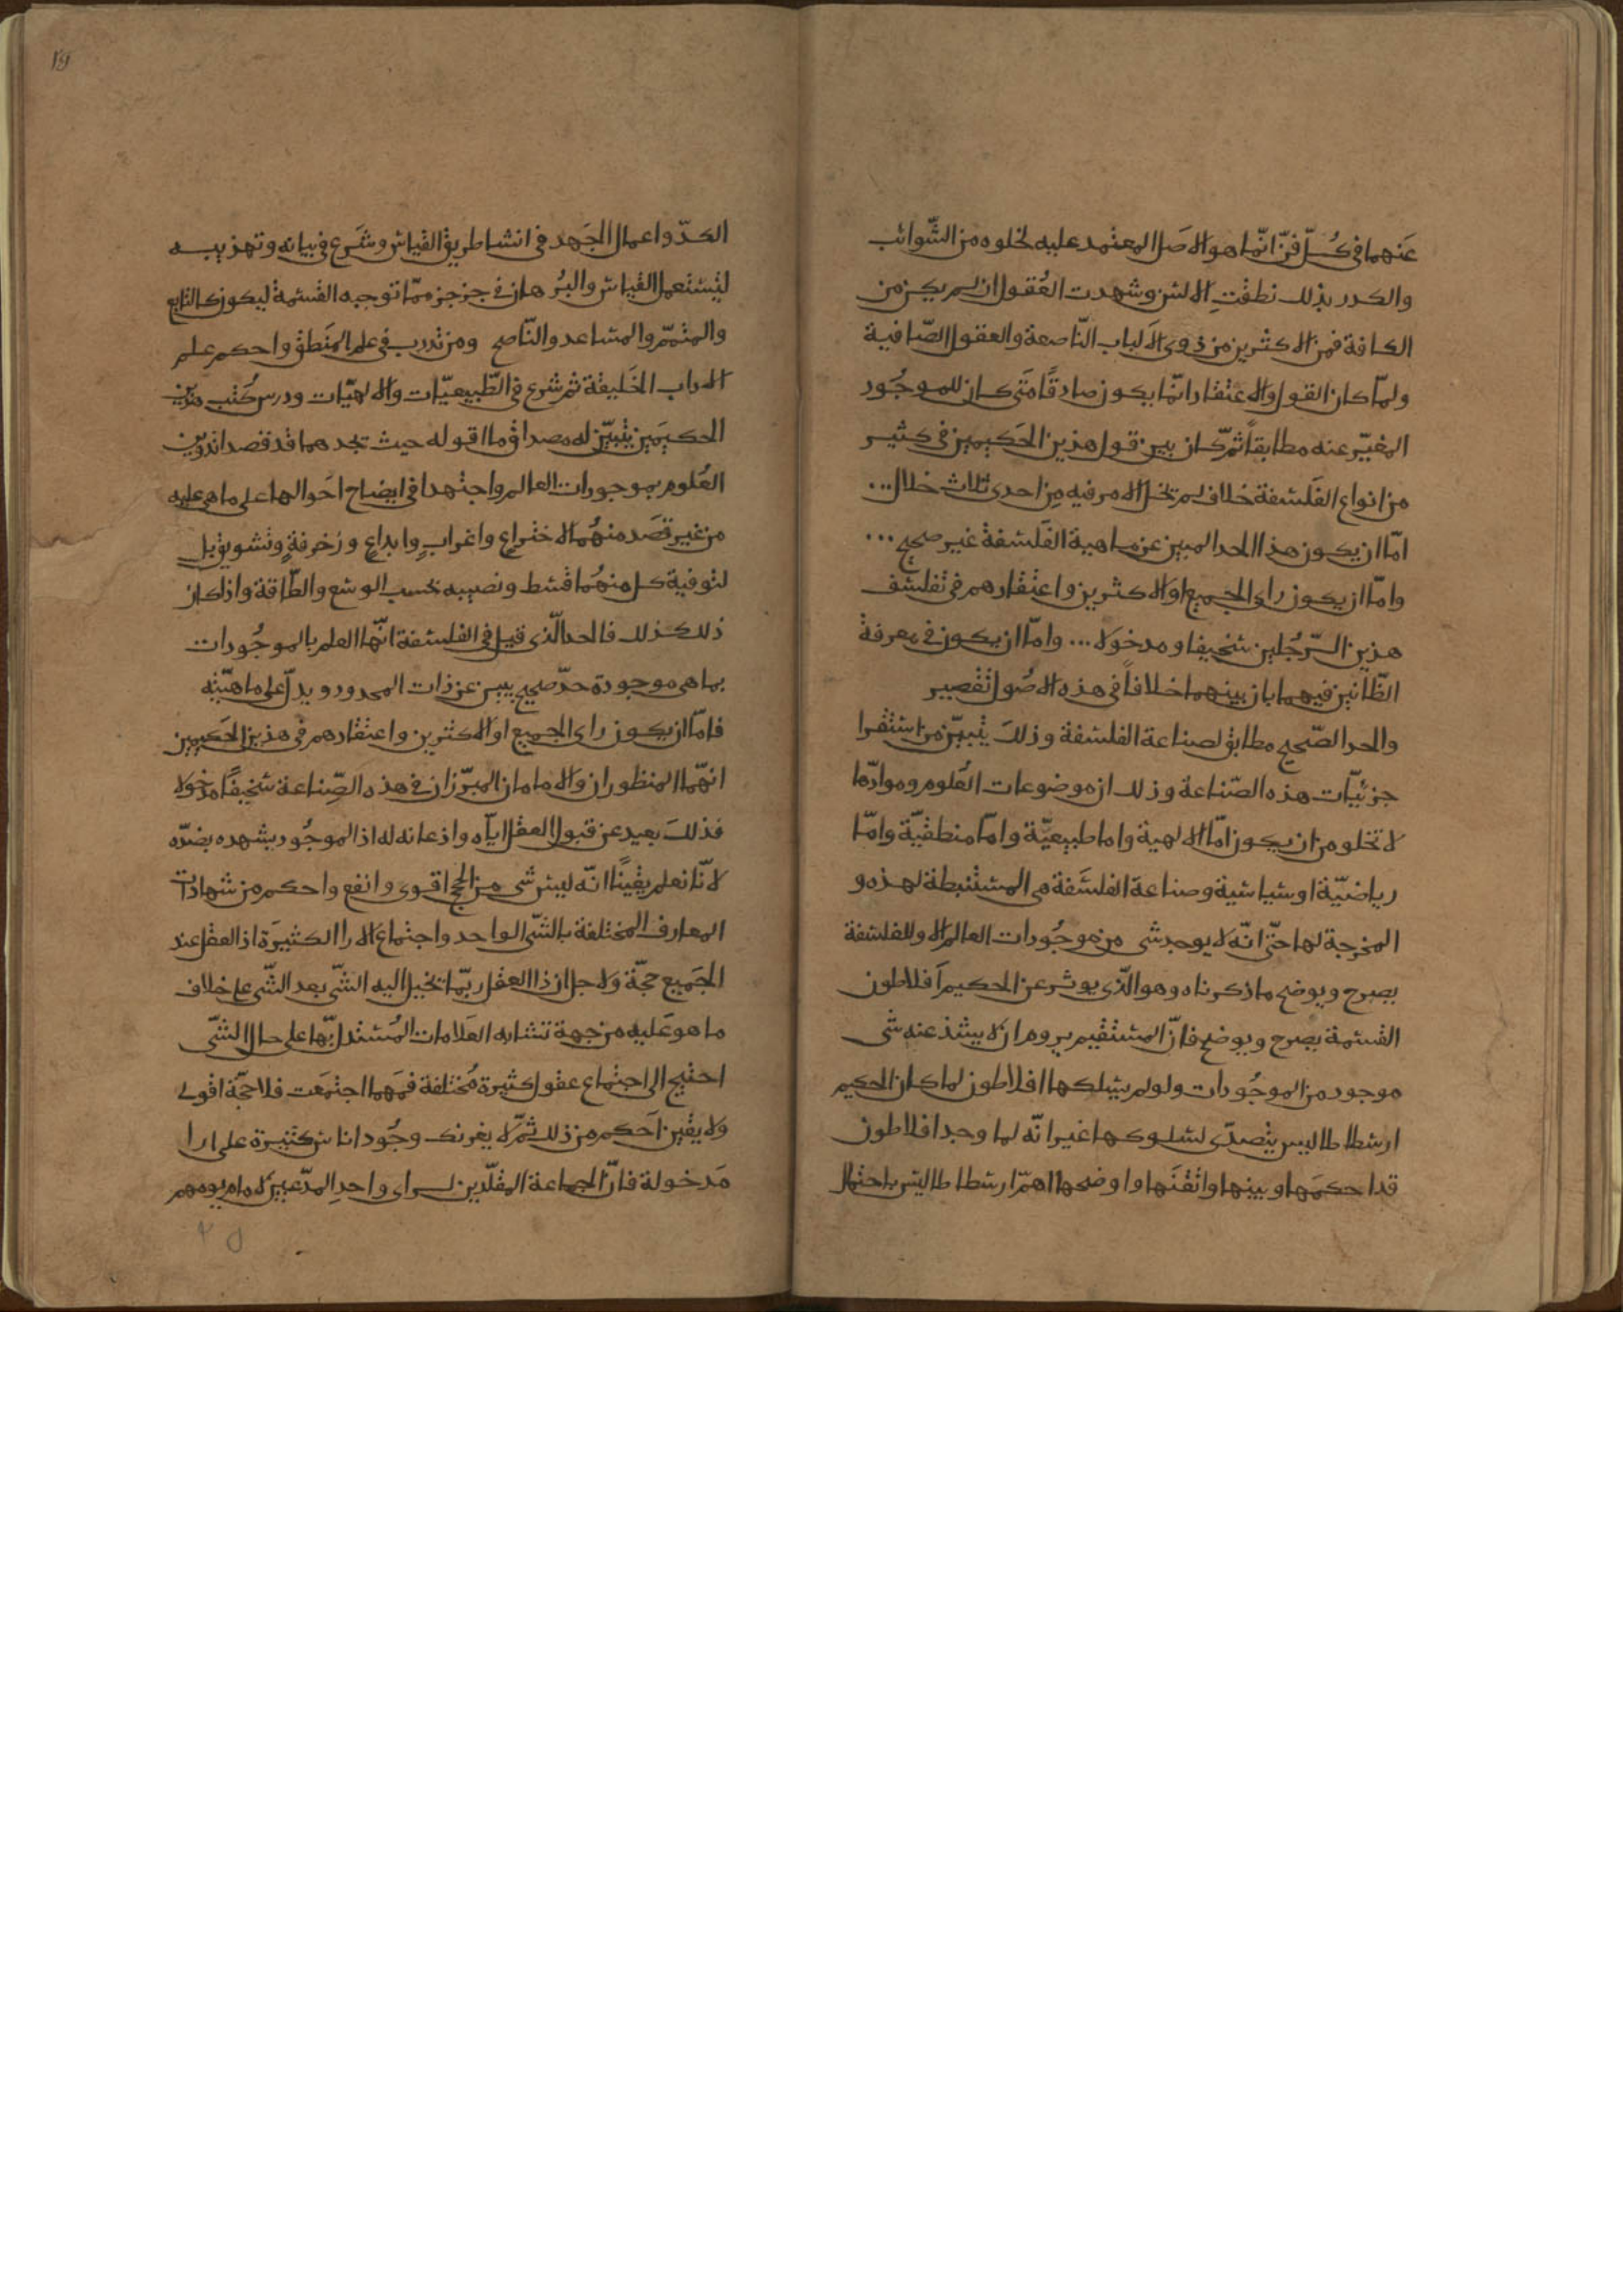 عنهما في كل فن انما هو الاصل المعتمد عليه لخلوه من الشوائب
والكدر بذلك نطقت الالسن وشهدت العقول ان لم يكن من
الكافة فمن الاكثرين من ذوى الالباب الناصعة والعقول الصافية
ولما كان القول والاعتقاد انما يكون صادقا متى كان للموجود
المعبر عنه مطابقا ثم كان بين قول هذين الحكيمين في كثير
من انواع الفلسفة خلاف لم تخل الامر فيه من احدى ثلاث خلال...
اما ان يكون هذا الحد المبين عن ماهية الفلسفة غير صحيح...
واما ان يكون راى الجميع او الاكثرين واعتقادهم في تفلسف
هذين الرجلين سخيفا ومدخولا... واما ان يكون في معرفة
الظانين فيهما بان بينهما خلافا في هذه الاصول تقصير
والحد الصحيح مطابق لصناعة الفلسفة وذلك يتبين من استقرا
جزئيات هذه الصناعة وذلك ان موضوعات العلوم وموادها
لا تخلو من ان يكون اما الالهية واما طبيعية واما منطقية واما
رياضية او سياسية وصناعة الفلسفة هى المستنبطة لهذه و
المخرجة لها حتى انه لا يوجد شى من موجودات العالم الا وللفلسفة
بصرح ويوضح ما ذكرناه وهو الذى يوثر عن الحكيم افلاطون
القسمة يصرح ويوضح فان المستقيم يروم ان لا يشذ عنه شى
موجود من الموجودات ولو لم يسلكها افلاطون لما كان الحكيم
ارسطاطاليس يتصدى لسلوكها غير انه لما وجد افلاطون
قد احكمها وبينها واتقنها واوضحها اهم ارسطاطاليس باحتمال
الكد واعمال الجهد في انشا طريق القياس وشرع في بيانه وتهذيبه
ليستعمل القياس والبرهان في جز جز مما توجبه القسمة ليكون كالتابع
والمتمم والمساعد والناصح ومن تدرب في علم المنطق واحكم علم
الاداب الخليقة ثم شرع في الطبيعيات والالهيات ودرس كتب هذين
الحكيمين يتبين له مصداق ما اقوله حيث تجدهما قد قصدا تدوين
العلوم بموجودات العالم واجتهدا في ايضاح احوالها على ما هى عليه
من غير قصد منهما لاختراع واغراب وابداع وزخرفة وتشويق بل
لتوفية كل منهما قسط ونصيبه بحسب الوسع والطاقة واذا كان
ذلك كذلك فالحد الذى قيل في الفلسفة انها العلم بالموجودات
بما هى موجودة حد صحيح يبين عن ذات المحدود ويدل على ماهيته
فاما ان يكون راى الجميع او الاكثرين واعتقادهم في هذين الحكيمين
انهما المنظوران والامامان المبرزان في هذه الصناعة سخيفا مدخولا
فذلك بعيد عن قبول العقل اياه واذعانه له اذ الموجود يشهد بضده
لانا نعلم يقينا انه ليس شى من الحجج اقوى وانفع واحكم من شهادات
المعارف المختلفة بالشى الواحد واجتماع الارا الكثيرة اذ العقل عند
الجميع حجة ولاجل ان ذا العقل ربما تخيل اليه الشى بعد الشى على خلاف
ما هو عليه من جهة تشابه العلامات المستدل بها على حال الشى
احتيج الى اجتماع عقول كثيرة مختلفة فمهما اجتمعت فلا حجة اقوى
ولا يقين احكم من ذلك ثم لا يغرنك وجود اناس كثيرة على ارا
مدخولة فان الجماعة المقلدين لراى واحد المدعين لامام يومهم